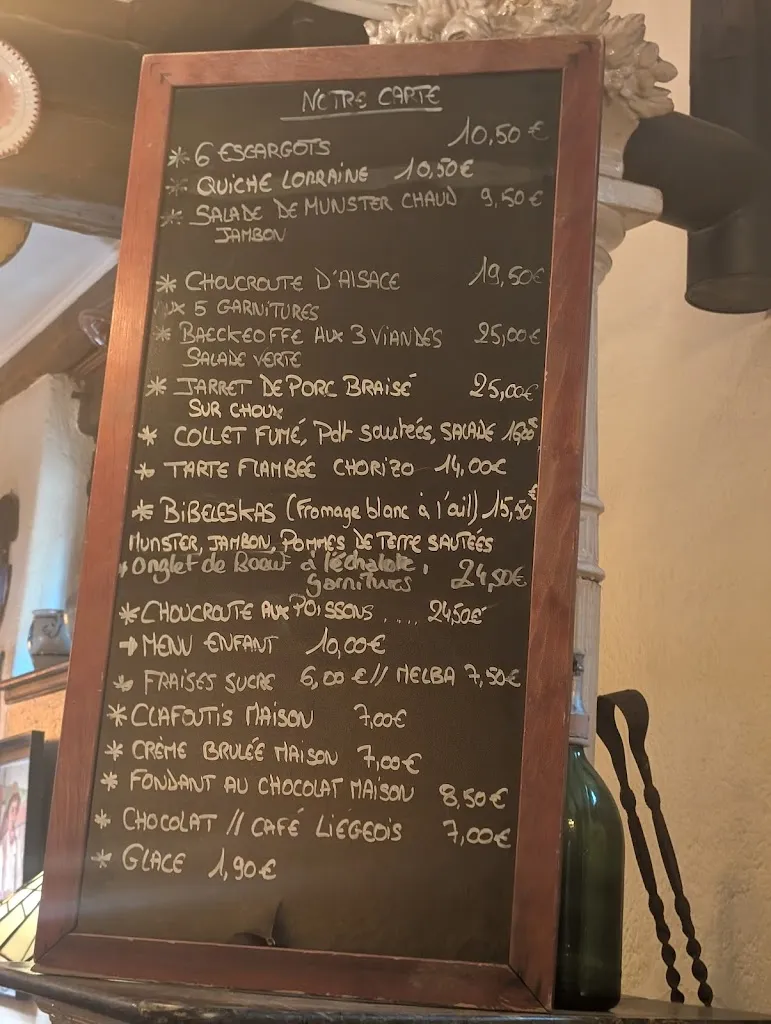 NOTRE CARTE
* 6 ESCARGOTS 10,50€
* QUICHE LORRAINE 10,50€
* SALADE DE MUNSTER CHAUD 9,50€
JAMBON
* CHOUCROUTE D'ALSACE 19,50€
AUX 5 GARNITURES
* BAECKEOFFE AUX 3 VIANDES 25,00€
SALADE VERTE
* JARRET DE PORC BRAISÉ 25,00€
SUR CHOUX
* COLLET FUMÉ, Pdt sautées, SALADE
* TARTE FLAMBÉE CHORIZO 14,00€
* BIBELESKAS (Fromage blanc à l'ail) 15,50€
MUNSTER, JAMBON, POMMES DE TERRE SAUTÉES
* Onglet de Boeuf à l'échalote, 24,50€
garnitures
* CHOUCROUTE AUX POISSONS .... 24,50€
→ MENU ENFANT 10,00€
* FRAISES SUCRE 6,00 € // MELBA 7,50€
* CLAFOUTIS MAISON 7,00€
* CRÈME BRULÉE MAISON 7,00€
* FONDANT AU CHOCOLAT MAISON 8,50€
* CHOCOLAT // CAFÉ LIÉGEOIS 7,00€
* GLACE 1,90€